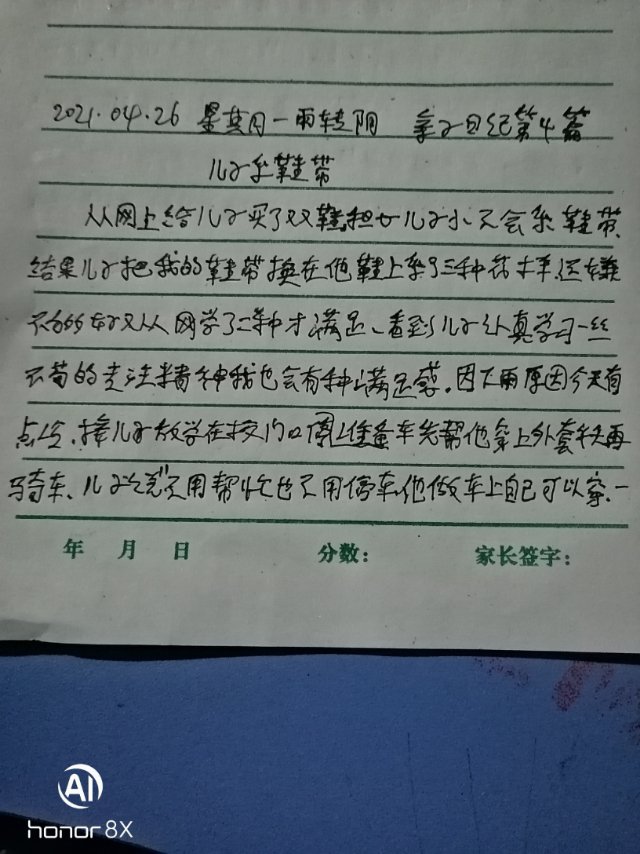 2021.04.26 星其月一雨转阴 亲子日纪第4篇
儿子系鞋带
从网上给儿子买了双鞋,担心儿子小不会系鞋带,
结果儿子把我的鞋带换在他鞋上系了三种花样,还嫌
不好的好又从网学了二种才满足、看到儿子认真学习一丝
不苟的专注精神我也会有种满足感。因下雨原因今天有
点冷、接儿子放学在校门口停车先帮他穿上外套再
骑车、儿子说"不用帮忙也不用停车,他做车上自己可以穿、一
年 月 日 分数: 家长签字:
AI
honor 8X